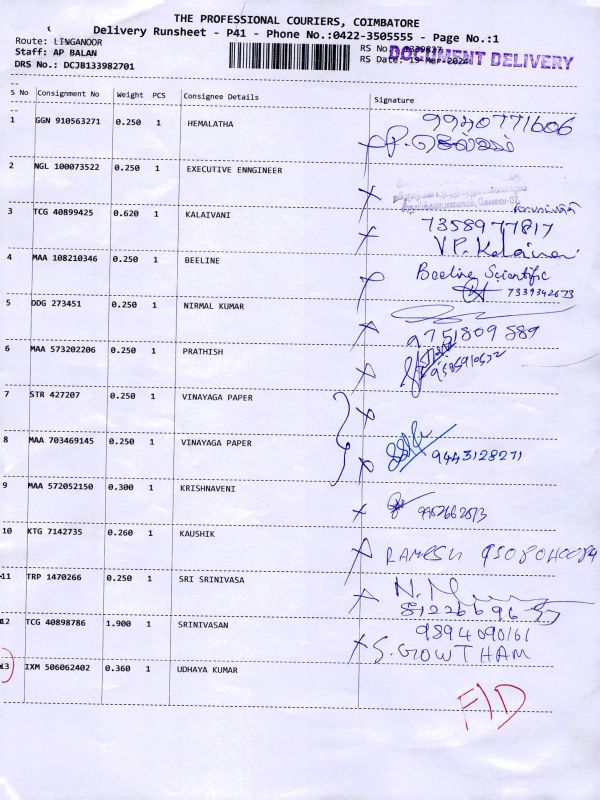 THE PROFESSIONAL COURIERS, COIMBATORE
Delivery Runsheet - P41 - Phone No.:0422-3505555 - Page No.:1
Route: LINGANOOR
RS No.: 1339827
DOCUMENT DELIVERY
Staff: AP BALAN
RS Date: 19-Mar-2024
DRS No.: DCJB133982701
S No Consignment No Weight PCS Consignee Details Signature
1 GGN 910563271 0.250 1 HEMALATHA 9940771606
2 NGL 100073522 0.250 1 EXECUTIVE ENNGINEER
3 TCG 40899425 0.620 1 KALAIVANI 7358977817
V.P. Kalaivani
4 MAA 108210346 0.250 1 BEELINE Beeline Scientific
7339342673
5 DDG 273451 0.250 1 NIRMAL KUMAR
9751809889
6 MAA 573202206 0.250 1 PRATHISH
7 STR 427207 0.250 1 VINAYAGA PAPER
8 MAA 703469145 0.250 1 VINAYAGA PAPER 9443128271
9 MAA 572052150 0.300 1 KRISHNAVENI
10 KTG 7142735 0.260 1 KAUSHIK RAMESH
11 TRP 1470266 0.250 1 SRI SRINIVASA
12 TCG 40898786 1.900 1 SRINIVASAN 9894090161
S. GOWTHAM
13 IXM 506062402 0.360 1 UDHAYA KUMAR
F/D